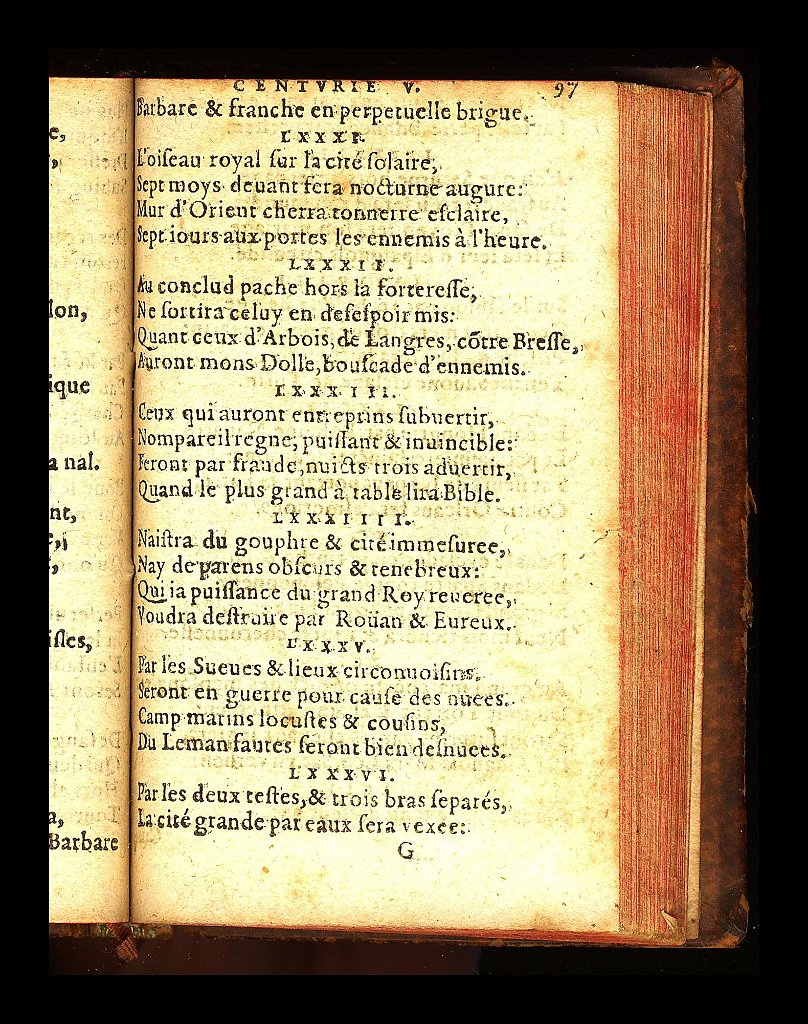 e,
,
ſon,
ique
a nal.
nt,
e,
,
iſles,
a,
Barbare
CENTVRIE V. 97
Barbare & franche en perpetuelle brigue.
LXXXI.
L'oiſeau royal ſur la cité ſolaire,
Sept moys deuant fera nocturne augure:
Mur d'Orient cherra tonnerre eſclaire,
Sept iours aux portes les ennemis à l'heure.
LXXXII.
Au conclud pache hors la fortereſſe,
Ne ſortira celuy en deſeſpoir mis:
Quant ceux d'Arbois, de Langres, cõtre Breſſe,
Auront mons Dolle, bouſcade d'ennemis.
LXXXIII.
Ceux qui auront entreprins ſubuertir,
Nompareil regne, puiſſant & inuincible:
Feront par fraude, nuicts trois aduertir,
Quand le plus grand à table lira Bible.
LXXXIIII.
Naiſtra du gouphre & cité immeſuree,
Nay de parens obſcurs & tenebreux:
Qui ia puiſſance du grand Roy reueree,
Voudra deſtruire par Roüan & Eureux.
LXXXV.
Par les Sueues & lieux circonuoiſins,
Seront en guerre pour cauſe des nuees.
Camp marins locuſtes & couſins,
Du Leman fautes ſeront bien deſnuees.
LXXXVI.
Par les deux teſtes, & trois bras ſeparés,
La cité grande par eaux ſera vexee:
G